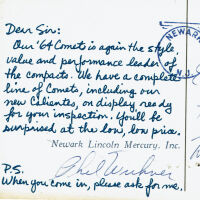 Dear Sir:
Our '64 Comet is again the style,
value and performance leader of
the compacts. We have a complete
line of Comets, including our
new Calientes, on display, ready
for your inspection. You'll be
surprised at the low, low price.
Newark Lincoln Mercury, Inc.
P.S.
When you come in, please ask for me.
NEWARK
N.J.